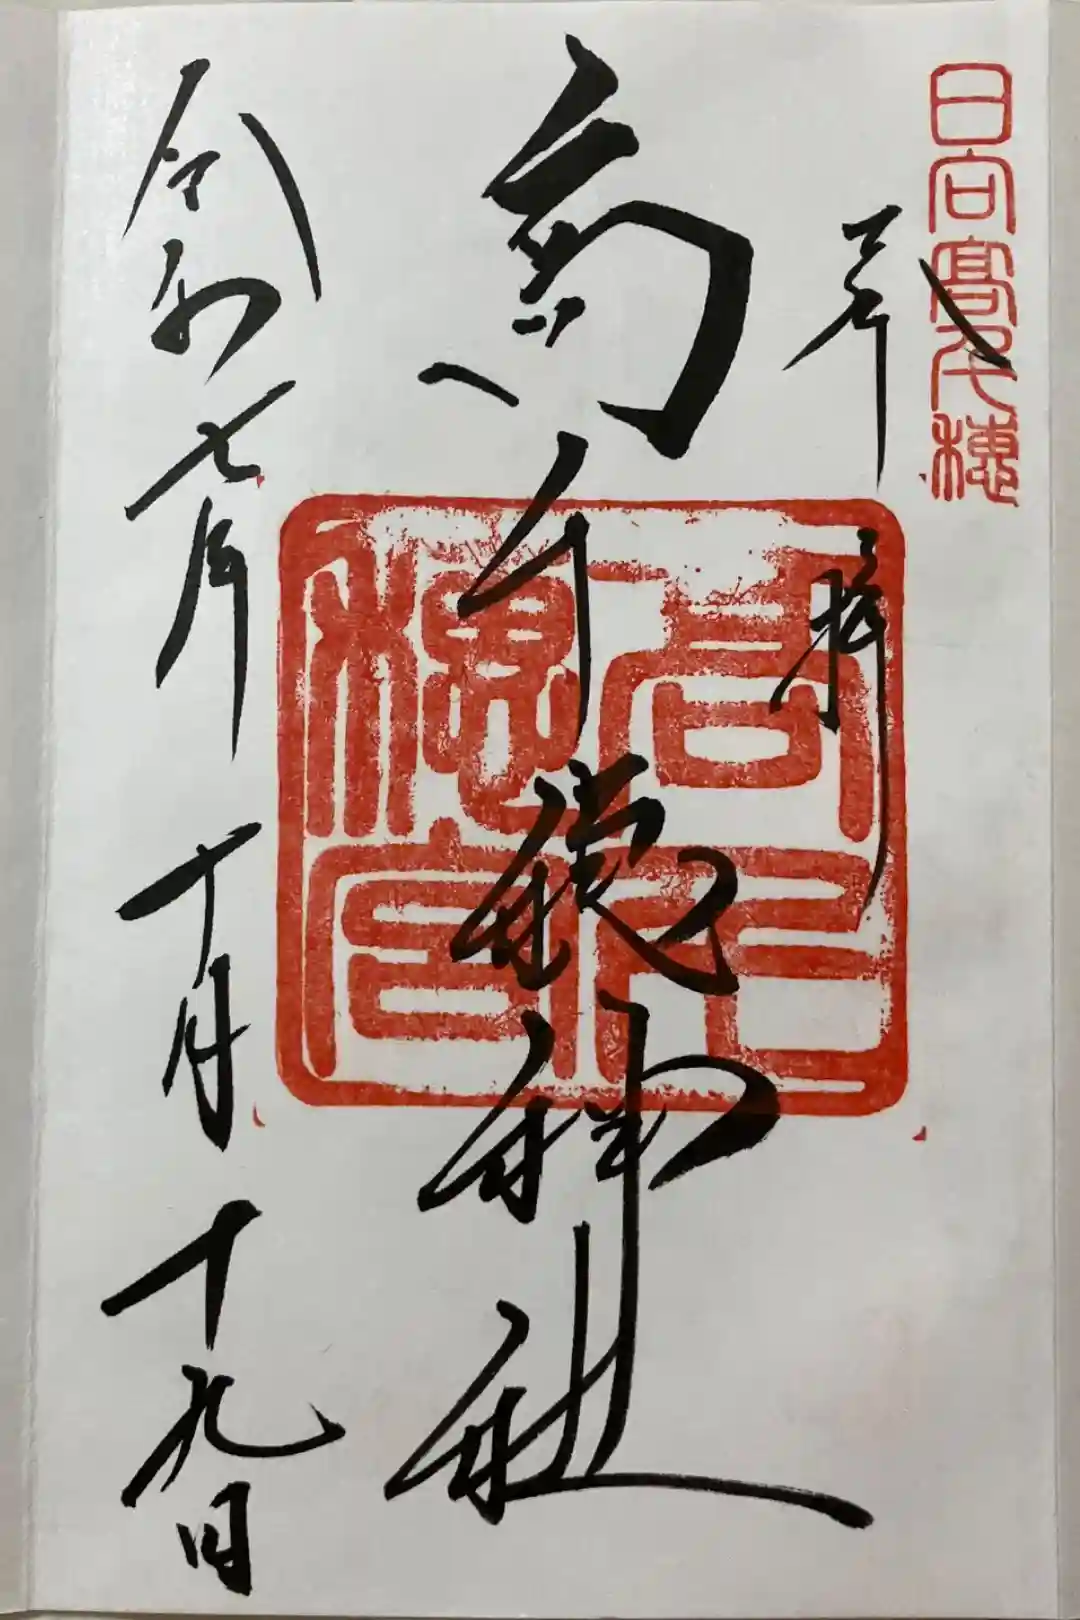 日向髙千穂
奉拝
高千穂神社
高千
穂宮
令和七年十月十九日